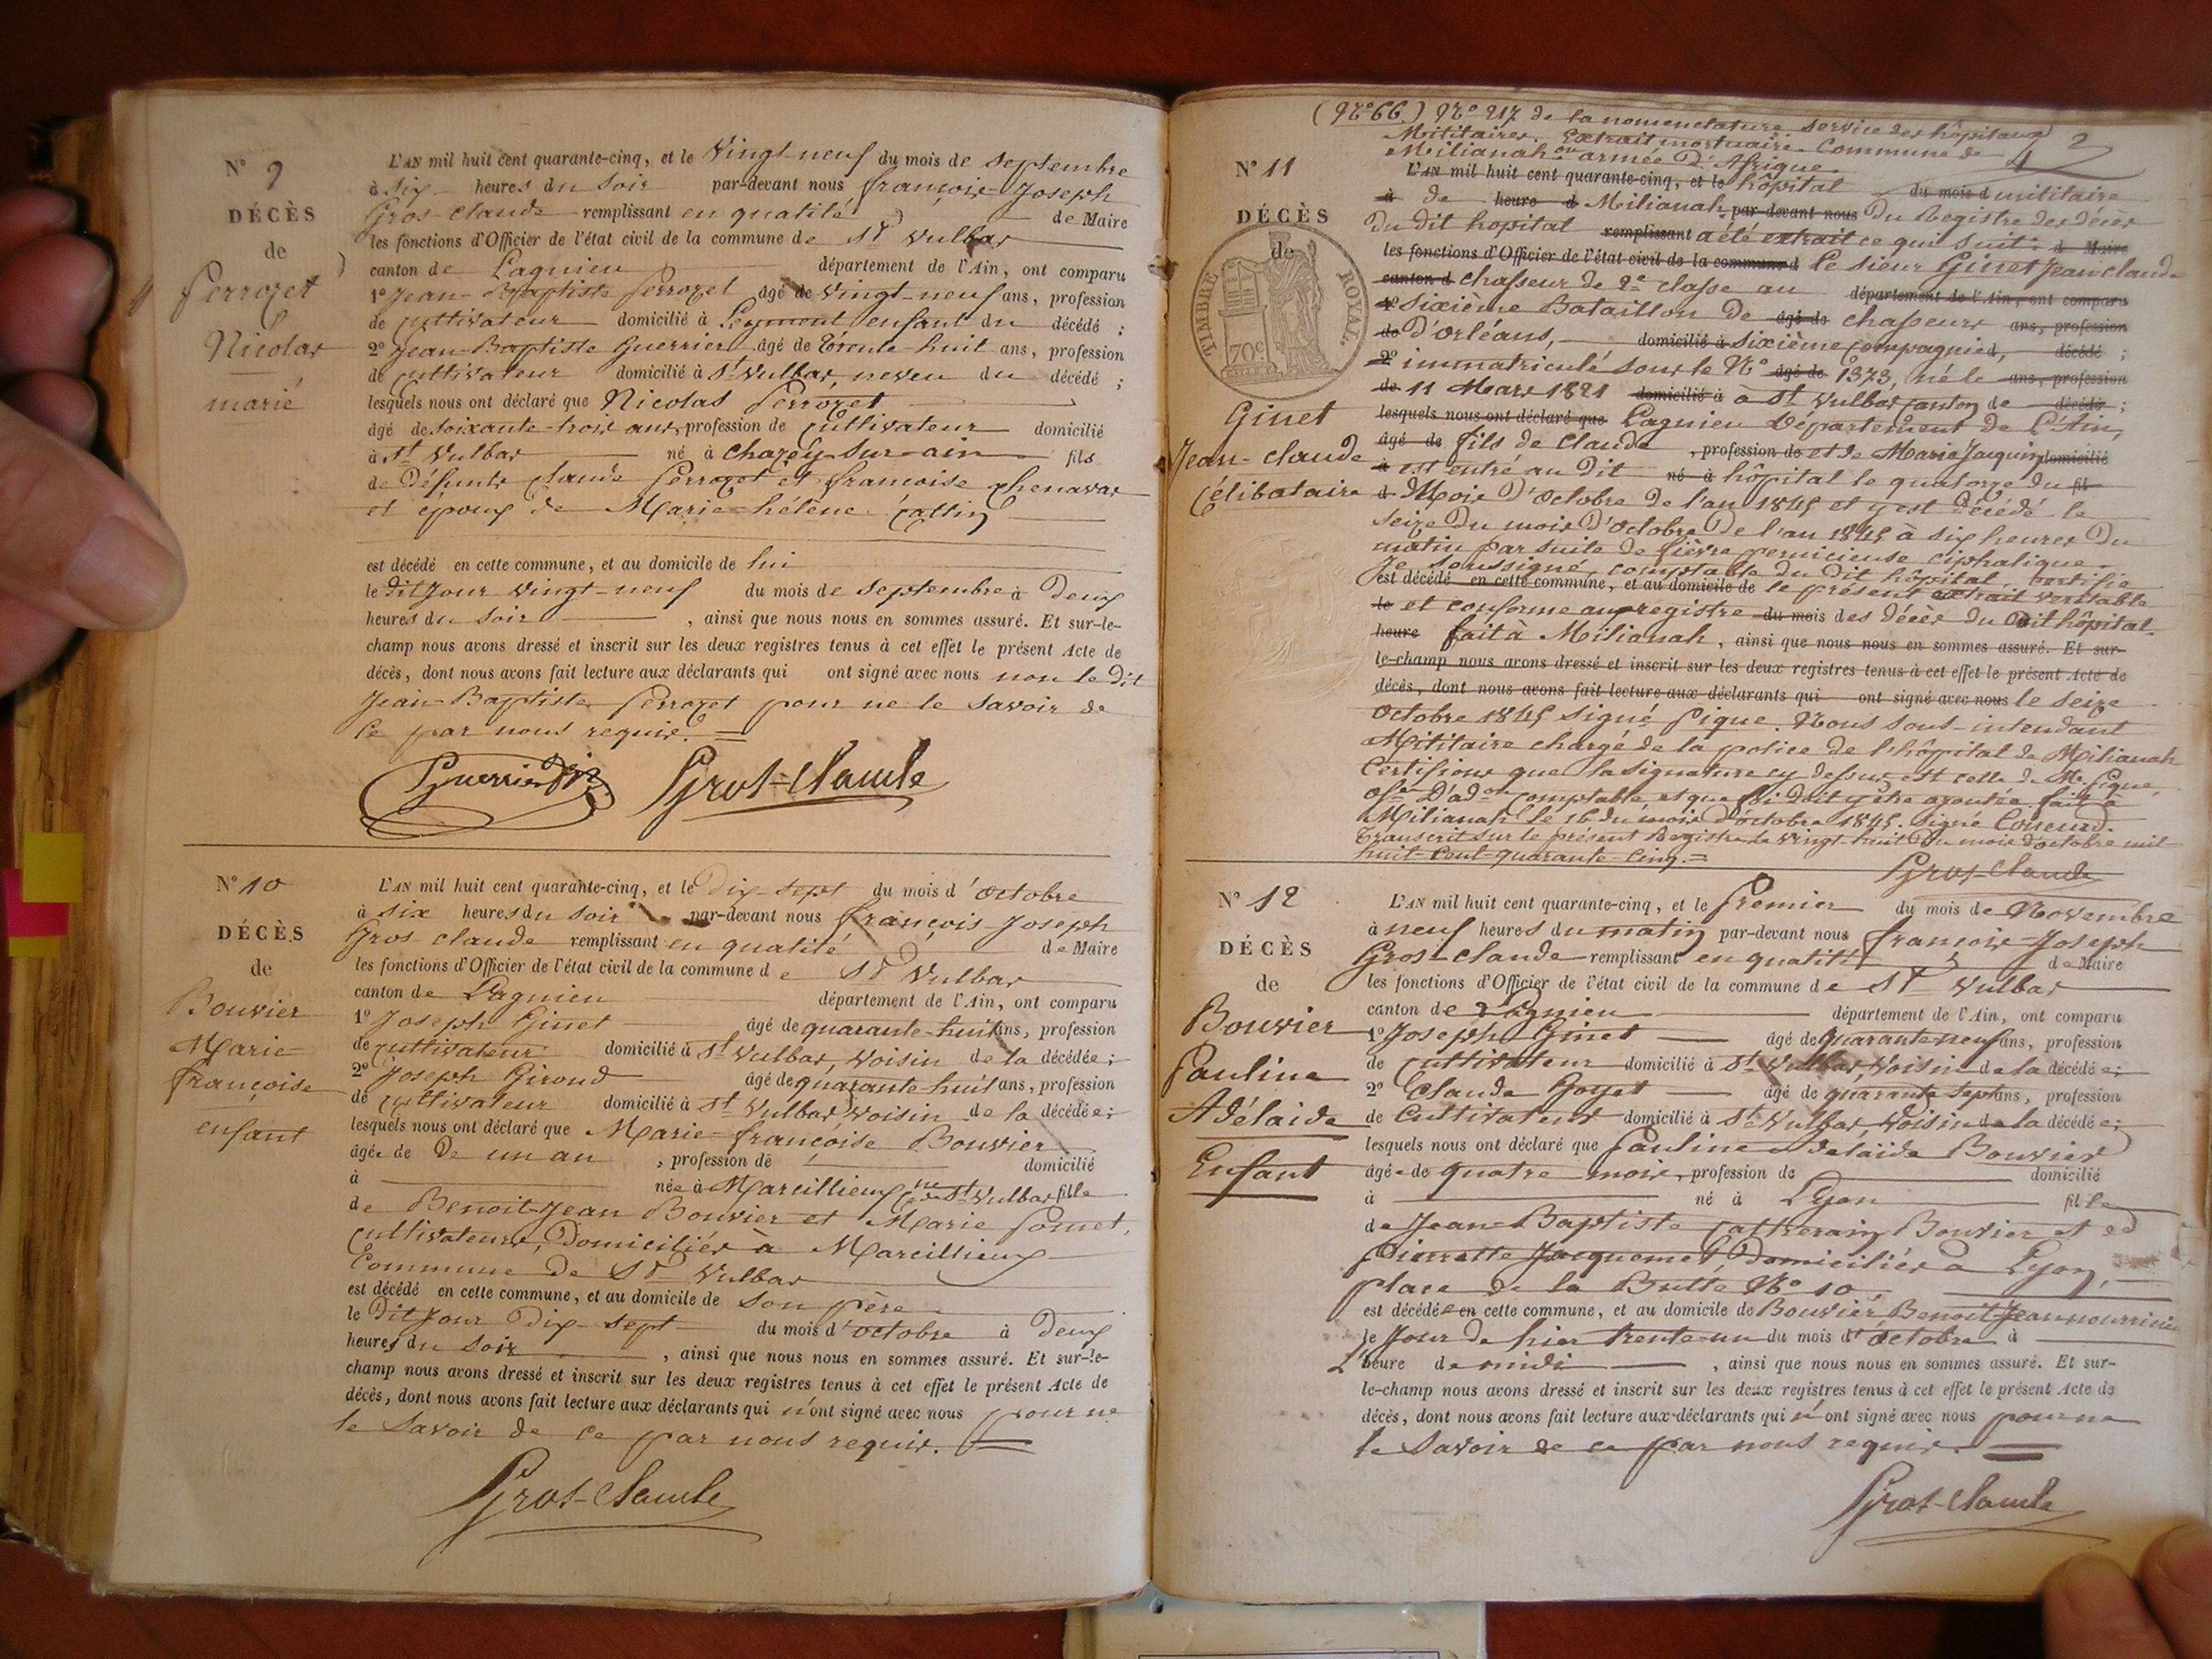 N° 9
DÉCÈS
de
Perrozet
Nicolas
marié
L'AN mil huit cent quarante-cinq, et le Vingt-neuf du mois de Septembre
à six heures du soir par-devant nous françois-Joseph
Gros-claude remplissant en qualité de Maire
les fonctions d'Officier de l'état civil de la commune de St Vulbas
canton de Lagnieu département de l'Ain, ont comparu
1° Jean-Baptiste Perrozet âgé de Vingt-neuf ans, profession
de cultivateur domicilié à Leyment enfant du décédé ;
2° Jean-Baptiste Guerrier âgé de trente-huit ans, profession
de cultivateur domicilié à St Vulbas, neveu du décédé ;
lesquels nous ont déclaré que Nicolas Perrozet
âgé de soixante-trois ans, profession de Cultivateur domicilié
à St Vulbas né à chazey-sur-ain fils
de défunts claude Perrozet et francoise chenavas
et époux de Marie-hélène Cattin
est décédé en cette commune, et au domicile de lui
le dit Jour Vingt-neuf du mois de Septembre à Deux
heures du soir , ainsi que nous nous en sommes assuré. Et sur-le-
champ nous avons dressé et inscrit sur les deux registres tenus à cet effet le présent Acte de
décès, dont nous avons fait lecture aux déclarants qui ont signé avec nous non le dit
Jean-Baptiste Perrozet pour ne le savoir de
ce par nous requis.
Guerrier Gros-claude
N° 10
DÉCÈS
de
Bouvier
Marie
françoise
enfant
L'AN mil huit cent quarante-cinq, et le Dix-sept du mois d'octobre
à six heures du soir par-devant nous françois-Joseph
Gros-claude remplissant en qualité de Maire
les fonctions d'Officier de l'état civil de la commune de St Vulbas
canton de Lagnieu département de l'Ain, ont comparu
1° Joseph Ginet âgé de quarante-huit ans, profession
de cultivateur domicilié à St Vulbas, Voisin de la décédée ;
2° Joseph Giroud âgé de quarante huit ans, profession
de cultivateur domicilié à St Vulbas Voisin de la décédée ;
lesquels nous ont déclaré que Marie-françoise Bouvier
âgée de De un an , profession de domicilié
à née à Marcillieux Cne de St Vulbas fille
de Benoit-Jean Bouvier et Marie Pomet,
cultivateurs, Domiciliés à Marcillieux
Commune de St Vulbas
est décédé en cette commune, et au domicile de son père
le Dit Jour Dix-sept du mois d'octobre à Deux
heures du soir , ainsi que nous nous en sommes assuré. Et sur-le-
champ nous avons dressé et inscrit sur les deux registres tenus à cet effet le présent Acte de
décès, dont nous avons fait lecture aux déclarants qui n'ont signé avec nous pour ne
le savoir de ce par nous requis.
Gros-claude
(N° 66.) N° 217 de la nomenclature service des hôpitaux
Militaires. Extrait mortuaire. Commune de
Milianah ou armée D'Afrique.
N° 11
DÉCÈS
de
TIMBRE ROYAL.
70c
Ginet
Jean-claude
Célibataire
L'AN mil huit cent quarante-cinq, et le hôpital du mois d militaire
à de heure d Milianah par-devant nous Du Registre des décès
du dit hopital remplissant a été extrait ce qui suit : d Maire
les fonctions d'Officier de l'état civil de la commune d Le sieur Ginet Jean claude
canton d Chasseur de 2e classe au département de l'Ain, ont comparu
1° sixième Bataillon de âgé de chasseurs ans, profession
de D'orléans, domicilié à sixième compagnie d, décédé ;
2° immatriculé sous le N° âgé de 1373, né le ans, profession
de 11 Mars 1821 domicilié à à St Vulbas canton de décédé ;
lesquels nous ont déclaré que Lagnieu Département de l'Ain,
âgé de fils de claude , profession de et de Marie Jacquin domicilié
à est entré au dit né à hôpital le quatorze du fil
d Mois D'octobre de l'an 1845 et y est décédé le
seize du mois D'octobre De l'an 1845 à six heures Du
matin par suite de fièvre pernicieuse ciphalique.
Je soussigné, comptable du dit hôpital, certifie
est décédé en cette commune, et au domicile de le présent extrait véritable
le et conforme au registre du mois des décès du Dit hôpital.
heure fait à Milianah , ainsi que nous nous en sommes assuré. Et sur-
le-champ nous avons dressé et inscrit sur les deux registres tenus à cet effet le présent Acte de
décès, dont nous avons fait lecture aux déclarants qui ont signé avec nous le seize
Octobre 1845 signé Pique. Nous sous-intendant
Militaire chargé de la police de l'hôpital de Milianah
Certifions que la signature cy dessus est celle de Mr Pique,
D'adon comptable et que foi doit y être ajoutée. fait à
Milianah le 16 du mois d'octobre 1845. signé
Transcrit sur le présent Registre le Vingt-huit Du mois d'octobre mil-
huit-cent-quarante-cinq.
Gros-claude
N° 12
DÉCÈS
de
Bouvier
Pauline
Adélaide
Enfant
L'AN mil huit cent quarante-cinq, et le Premier du mois de Novembre
à neuf heures du matin par-devant nous françois-Joseph
Gros-claude remplissant en qualité de Maire
les fonctions d'Officier de l'état civil de la commune de St Vulbas
canton de Lagnieu département de l'Ain, ont comparu
1° Joseph Ginet âgé de quarante neuf ans, profession
de Cultivateur domicilié à St Vulbas, Voisin de la décédée ;
2° Claude Goyet âgé de quarante sept ans, profession
de Cultivateur domicilié à St Vulbas, Voisin de la décédée ;
lesquels nous ont déclaré que Pauline adelaïde Bouvier
âgée de quatre mois, profession de domicilié
à né à Lyon fille
de Jean-Baptiste Cattherain Bouvier et
Pierrette Jacquemet, Domiciliés à Lyon,
place de la Butte N° 10
est décédée en cette commune, et au domicile de Bouvier Benoit-Jean nourricier
le Jour de hier trente-un du mois d'octobre à
L'heure de midi , ainsi que nous nous en sommes assuré. Et sur-
le-champ nous avons dressé et inscrit sur les deux registres tenus à cet effet le présent Acte de
décès, dont nous avons fait lecture aux déclarants qui n'ont signé avec nous pour ne
le savoir de ce par nous requis.
Gros-claude